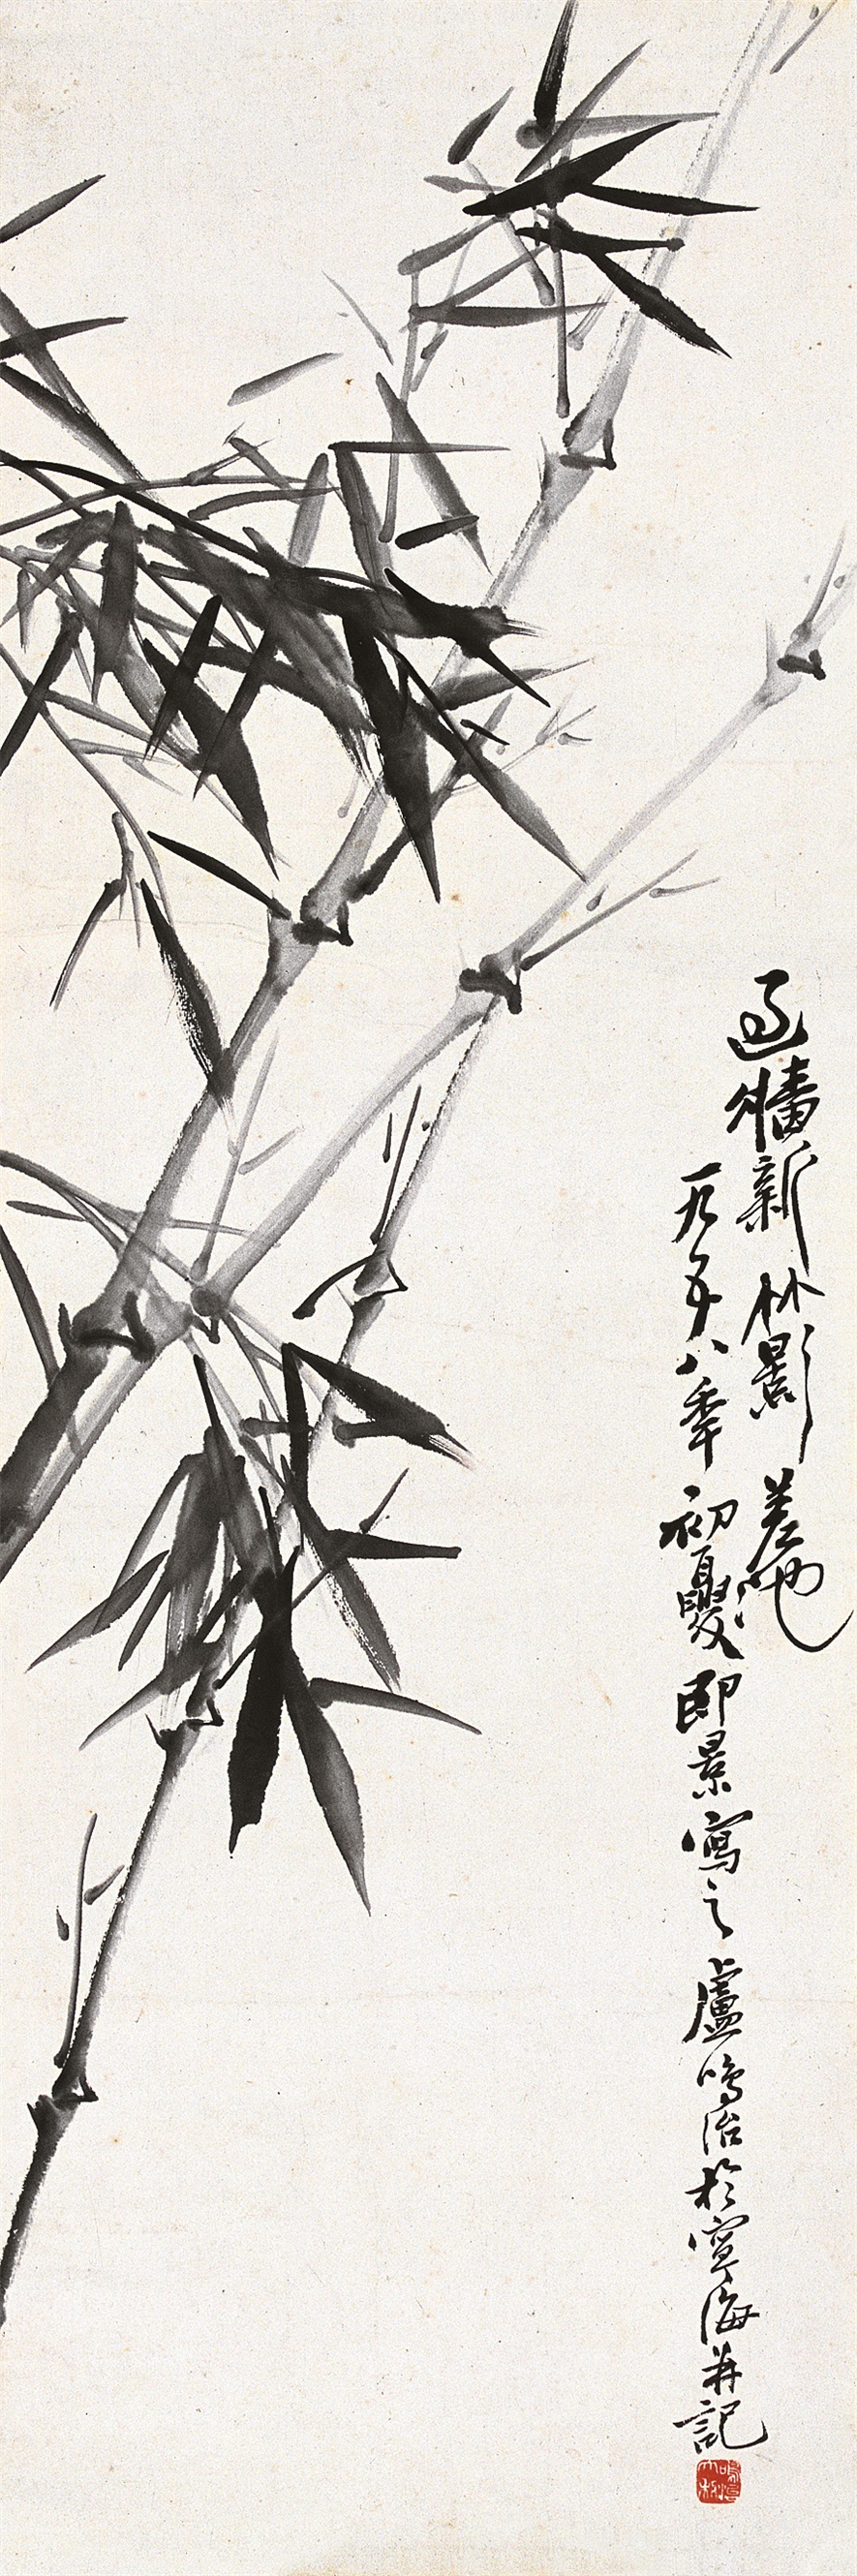 過牆新竹影差池
一九五八年初夏即景寫之盧鳴治於寧海并記